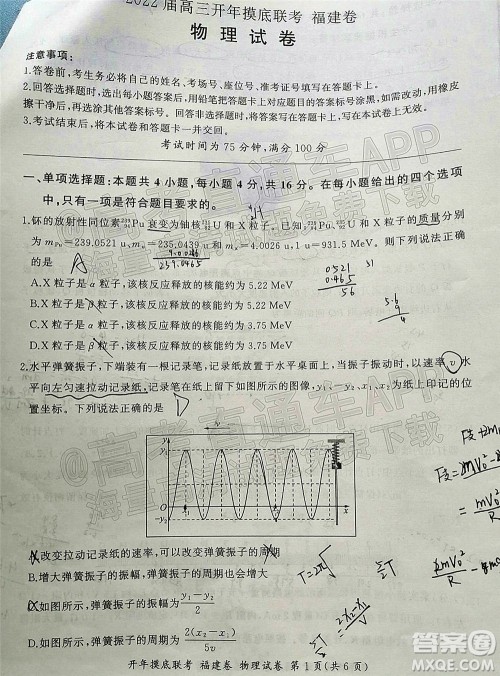 2022届高三开年摸底联考 福建卷
物理试卷
注意事项:
1.答卷前,考生务必将自己的姓名、考场号、座位号、准考证号填写在答题卡上。
2.回答选择题时,选出每小题答案后,用铅笔把答题卡上对应题目的答案标号涂黑,如需改动,用橡皮
擦干净后,再选涂其他答案标号。回答非选择题时,将答案写在答题卡上。写在本试卷上无效。
3.考试结束后,将本试卷和答题卡一并交回。
考试时间为75分钟,满分100分
一、单项选择题:本题共4小题,每小题4分,共16分。在每小题给出的四个选项
中,只有一项是符合题目要求的。
1.钚的放射性同位素 Pu 衰变为铀核 U 和 X 粒子。已知 Pu、U 和 X 粒子的质量分别
为 mPu=239.0521 u、 =235.0439 u 和 =4.0026 u,1 u=931.5 MeV。则下列说法正确
的是 A
9.0026
239.0465
0.0521
0.0465
56
31
5.6
9
4
A.X 粒子是 α 粒子,该核反应释放的核能约为 5.22 MeV
B.X 粒子是 β 粒子,该核反应释放的核能约为 5.22 MeV
C.X 粒子是 α 粒子,该核反应释放的核能约为 3.75 MeV
D.X 粒子是 β 粒子,该核反应释放的核能约为 3.75 MeV
2.水平弹簧振子,下端装有一根记录笔,记录纸放置于水平桌面上,当振子振动时,以速率 v 水
平向左匀速拉动记录纸,记录笔在纸上留下如图所示的图像,y₁、y₂、x₁、x₂为纸上印记的位
置坐标。下列说法正确的是 D
y₁
y₂
A.改变拉动记录纸的速率,可以改变弹簧振子的周期
B.增大弹簧振子的振幅,弹簧振子的周期也会增大
C.如图所示,弹簧振子的振幅为 (y₁−y₂)/2
D.如图所示,弹簧振子的周期为 2(x₂−x₁)/5v
开年摸底联考 福建卷 物理试卷 第1页(共6页)
@高考直通车APP
海量高清试题免费下载
答案圈
MXQE.COM